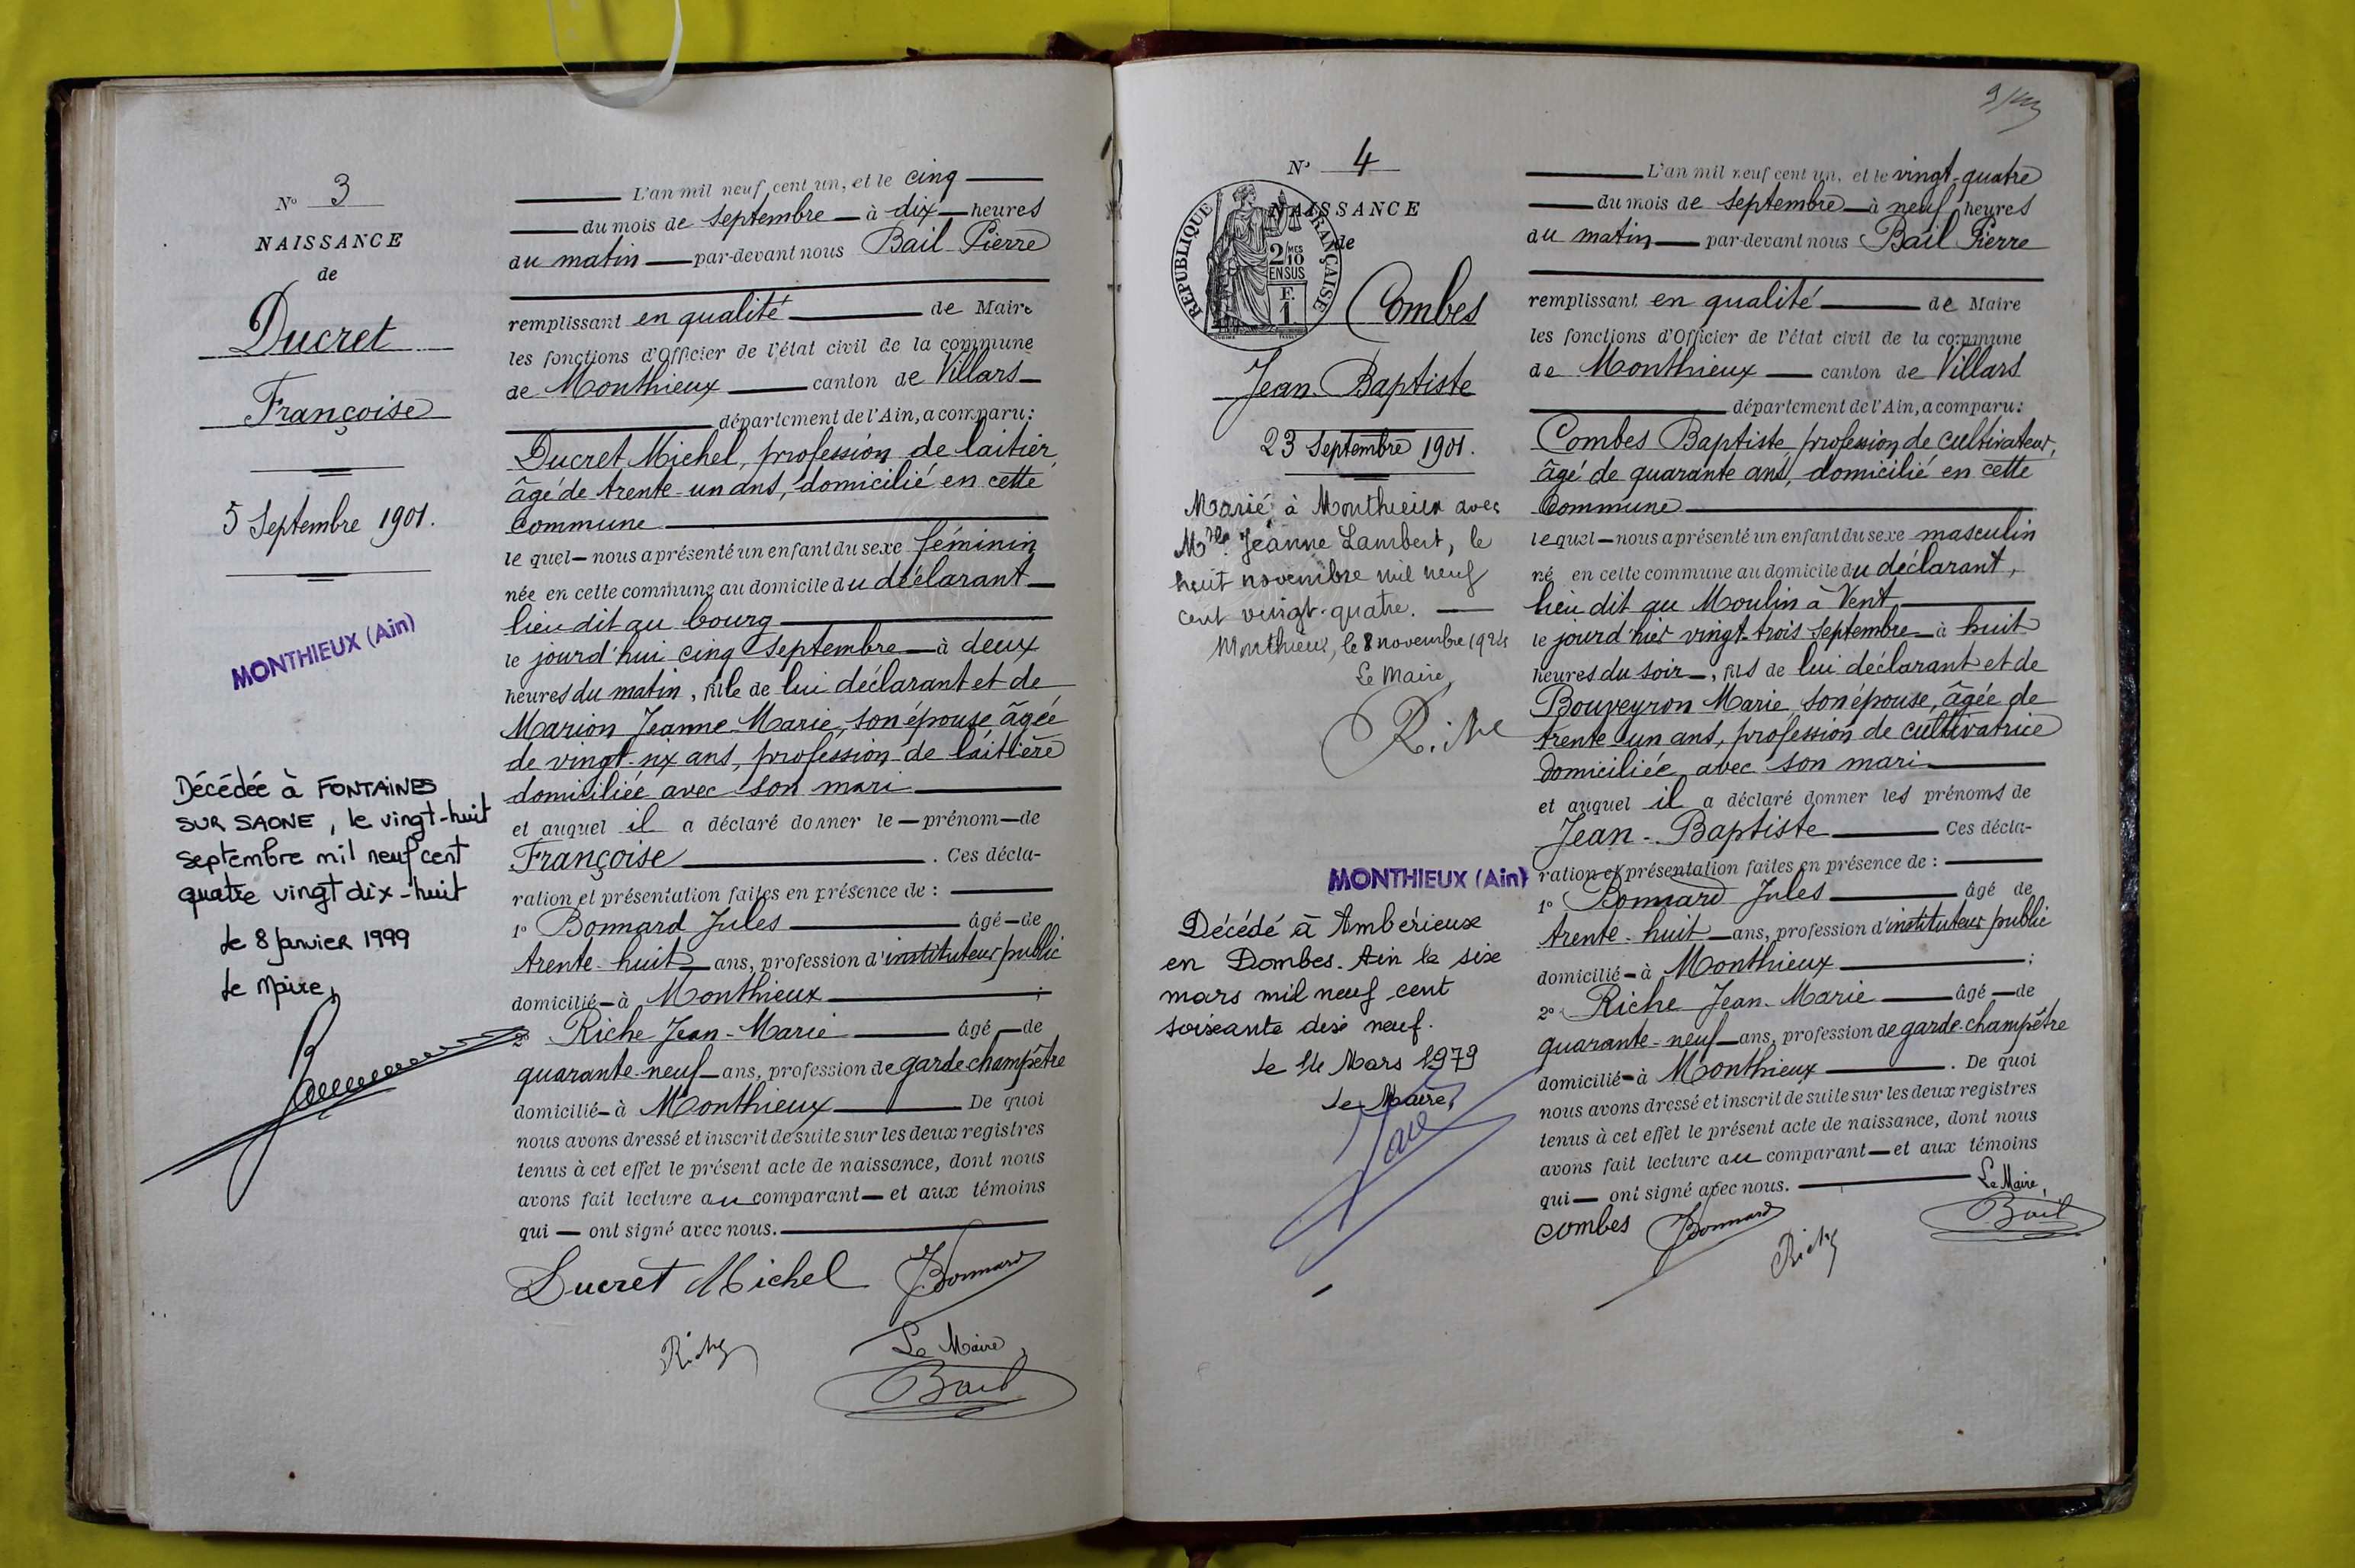 N° 3
NAISSANCE
de
Ducret
Françoise
5 Septembre 1901.
MONTHIEUX (Ain)
Décédée à FONTAINES
SUR SAONE, le vingt-huit
septembre mil neuf cent
quatre vingt dix-huit
Le 8 Janvier 1999
Le Maire,
L'an mil neuf cent un, et le cinq
du mois de Septembre à dix heures
du matin par-devant nous Bail Pierre
remplissant en qualité de Maire
les fonctions d'Officier de l'état civil de la commune
de Monthieux canton de Villars
département de l'Ain, a comparu:
Ducret Michel, profession de laitier,
âgé de trente-un ans, domicilié en cette
commune
le quel nous a présenté un enfant du sexe féminin
née en cette commune au domicile du déclarant
lieu dit au bourg
le jourd'hui cinq Septembre à deux
heures du matin, fille de lui déclarant et de
Marion Jeanne-Marie, son épouse, âgée
de vingt-six ans, profession de laitière
domiciliée avec son mari
et auquel il a déclaré donner le prénom de
Françoise. Ces décla-
ration et présentation faites en présence de :
1° Bonnard Jules âgé de
trente-huit ans, profession d'instituteur public
domicilié à Monthieux ;
2° Riche Jean-Marie âgé de
quarante-neuf ans, profession de garde-champêtre
domicilié à Monthieux De quoi
nous avons dressé et inscrit de suite sur les deux registres
tenus à cet effet le présent acte de naissance, dont nous
avons fait lecture au comparant et aux témoins
qui ont signé avec nous.
Ducret Michel JBonnard
Riche
Le Maire,
Bail
N° 4
NAISSANCE
de
REPUBLIQUE FRANÇAISE
2 MES
10
EN SUS
F.
1
Combes
Jean-Baptiste
23 Septembre 1901.
Marié à Monthieux avec
Mlle Jeanne Lambert, le
huit novembre mil neuf
cent vingt-quatre.
Monthieux, le 8 novembre 1924
Le Maire,
Riche
MONTHIEUX (Ain)
Décédé à Ambérieux
en Dombes. Ain le six
mars mil neuf cent
soixante dix neuf.
Le 14 Mars 1979
Le Maire,
L'an mil neuf cent un, et le vingt-quatre
du mois de Septembre à neuf heures
du matin par-devant nous Bail Pierre
remplissant en qualité de Maire
les fonctions d'Officier de l'état civil de la commune
de Monthieux canton de Villars
département de l'Ain, a comparu:
Combes Baptiste, profession de cultivateur,
âgé de quarante ans, domicilié en cette
Commune
lequel nous a présenté un enfant du sexe masculin
né en cette commune au domicile du déclarant,
lieu dit au Moulin à Vent
le jour d'hier vingt-trois Septembre à huit
heures du soir, fils de lui déclarant et de
Bouveyron Marie, son épouse, âgée de
trente-un ans, profession de cultivatrice
domiciliée avec son mari
et auquel il a déclaré donner les prénoms de
Jean-Baptiste Ces décla-
ration et présentation faites en présence de :
1° Bonnard Jules âgé de
trente-huit ans, profession d'instituteur public
domicilié à Monthieux ;
2° Riche Jean-Marie âgé de
quarante-neuf ans, profession de garde-champêtre
domicilié à Monthieux. De quoi
nous avons dressé et inscrit de suite sur les deux registres
tenus à cet effet le présent acte de naissance, dont nous
avons fait lecture au comparant et aux témoins
qui ont signé avec nous.
Le Maire,
combes JBonnard Riche Bail